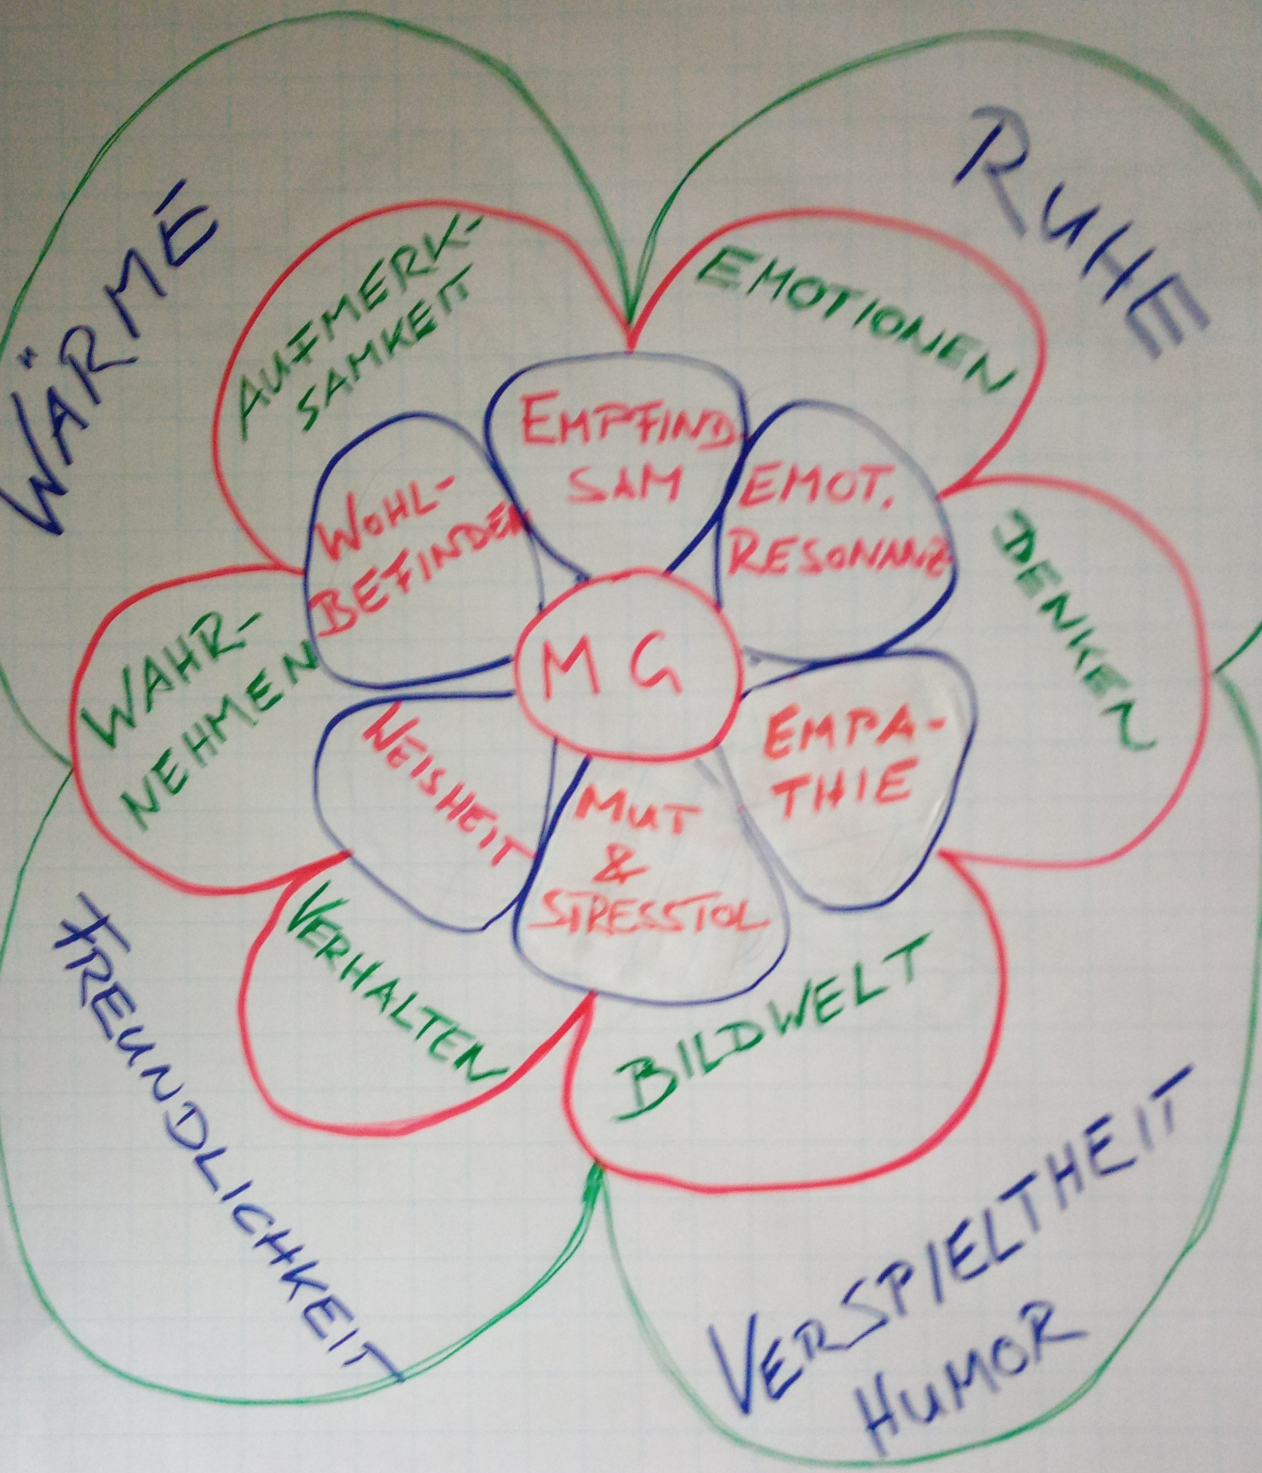 WÄRME
RUHE
AUFMERK-
SAMKEIT
EMOTIONEN
EMPFIND
SAM
WOHL-
BEFINDEN
EMOT.
RESONANZ
DENKEN
WAHR-
NEHMEN
MG
WEISHEIT
EMPA-
THIE
MUT
&
STRESSTOL
VERHALTEN
BILDWELT
FREUNDLICHKEIT
VERSPIELTHEIT
HUMOR